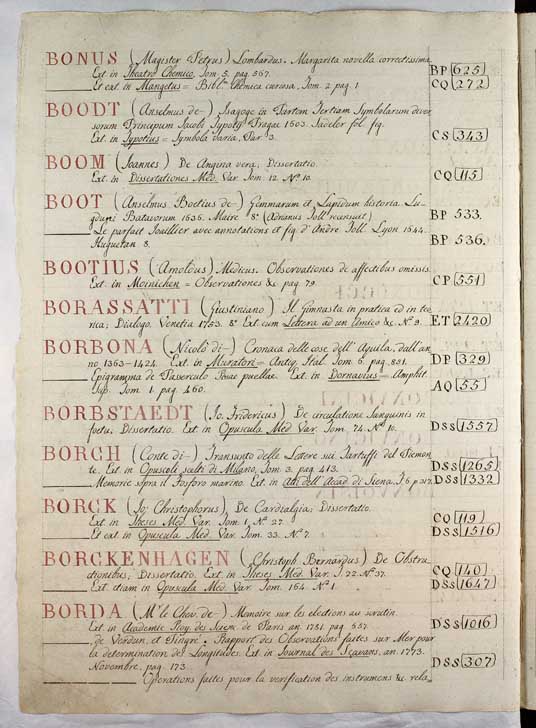 BONUS (Magister Petrus) Lombardus. Margarita novella correctissima
Ext in Theatro Chemico, Tom. 5. pag. 567. BP 625
Et ext in Mangetus = Bibl. Chemica curiosa, Tom. 2. pag. 1 CQ 272
BOODT (Anselmus de-) Isagoge in Partem Tertiam Symbolorum diver
sorum Principum Jacobi Typotij Pragae 1603. Sadeler fol. fig.
Ext. in Typotius = Symbola varia, Par 3. CS 343
BOOM (Joannes) De Angina vera, Dissertatio.
Ext. in Dissertationes Med. Var Tom. 12. N° 10. CQ 115
BOOT (Anselmus Boetius de-) Gemmarum et Lapidum historia Lu-
gduni Batavorum 1636. Maire 8° (Adrianus Toll recensuit) BP 533.
Le parfait Joaillier avec annotations et fig d'Andre Toll. Lyon 1644.
Huguetan 8. BP 536.
BOOTIUS (Arnoldus) Medicus. Observationes de affectibus omissis.
Ext. in Moinichen = Observationes &c pag. 79 CP 551
BORASSATTI (Giustiniano) Il Ginnasta in pratica ed in teo
rica; Dialogo. Venetia 1753. 8° Ext cum Lettera ad un Amico &c N° 9. ET 2420
BORBONA (Nicolò di-) Cronaca delle cose dell' Aquila, dall'an
no 1363-1424. Ext. in Muratori = Antiq. Ital. Tom. 6. pag. 851. DP 329
Epigramma de Paserculo suae puellae. Ext. in Dornavius = Amphit.
Sap. Tom 1. pag. 460. AQ 55
BORBSTAEDT (Jo. Fridericus) De circulatione Sanguinis in
foetu; Dissertatio. Ext in Opuscula Med Var. Tom. 74. N° 10. DSS 1557
BORCH (Conte di-) Transunto delle Letere sui Tartuffi del Piemon
te. Ext in Opuscoli scelti di Milano, Tom. 3. pag. 413. DSS 1265
Memorie sopra il Fosforo marino. Ext. in Atti dell' Acad di Siena, T 6 p 317. DSS 1332
BORCK (Jo: Christophorus) De Cardialgia; Dissertatio.
Ext in Theses Med. Var. Tom. 1. N° 27 CQ 119
Et ext in Opuscula Med Var. Tom. 33. N° 7 DSS 1516
BORCKENHAGEN (Christoph Bernardus) De Obstru
ctionibus; Dissertatio. Ext in Theses Med. Var. T. 22. N° 37. CQ 140
Ext etiam in Opuscula Med Var. Tom. 164. N° 1 DSS 1647
BORDA (Mr le Chev. de-) Memoire sur les elections au scrutin.
Ext. in Academie Roy. des Scien. de Paris an. 1781 pag 657. DSS 1016
de Verdun, et Pingré: Rapport des Observations faites sur Mer pour
la determination des Longitudes. Ext. in Journal des Sçavans, an. 1773.
Novembre, pag 173. DSS 307
Operations faites pour la verification des instrumens &c rela